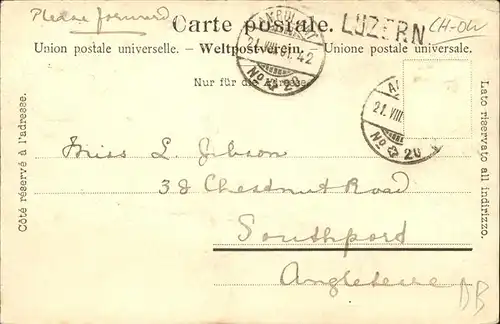 Please forward
Carte postale.
LUZERN
CH-OW
Union postale universelle. – Weltpostverein. – Unione postale universale.
21. VIII. 01. 42
No 20
Nur für die Adresse.
21. VIII
No 20
Côté réservé à l'adresse.
Lato riservato all indirizzo.
Miss L. Gibson
38 Chestnut Road
Southport
Angleterre
DB